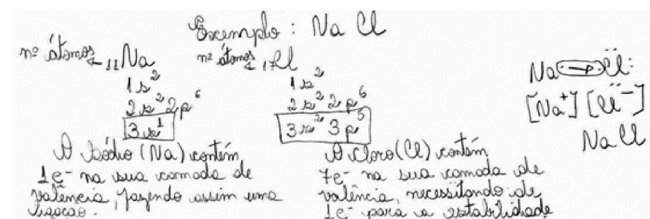 Exemplo: NaCl
nº átomos 11Na
1s²
2s² 2p⁶
3s¹
O Sódio (Na) contém
1e⁻ na sua camada de
valência, fazendo assim uma
ligação.
nº átomos 17Cl
1s²
2s² 2p⁶
3s² 3p⁵
O cloro (Cl) contém
7e⁻ na sua camada de
valência, necessitando de
1e⁻ para a estabilidade
Na → Cl:
[Na⁺] [Cl⁻]
NaCl